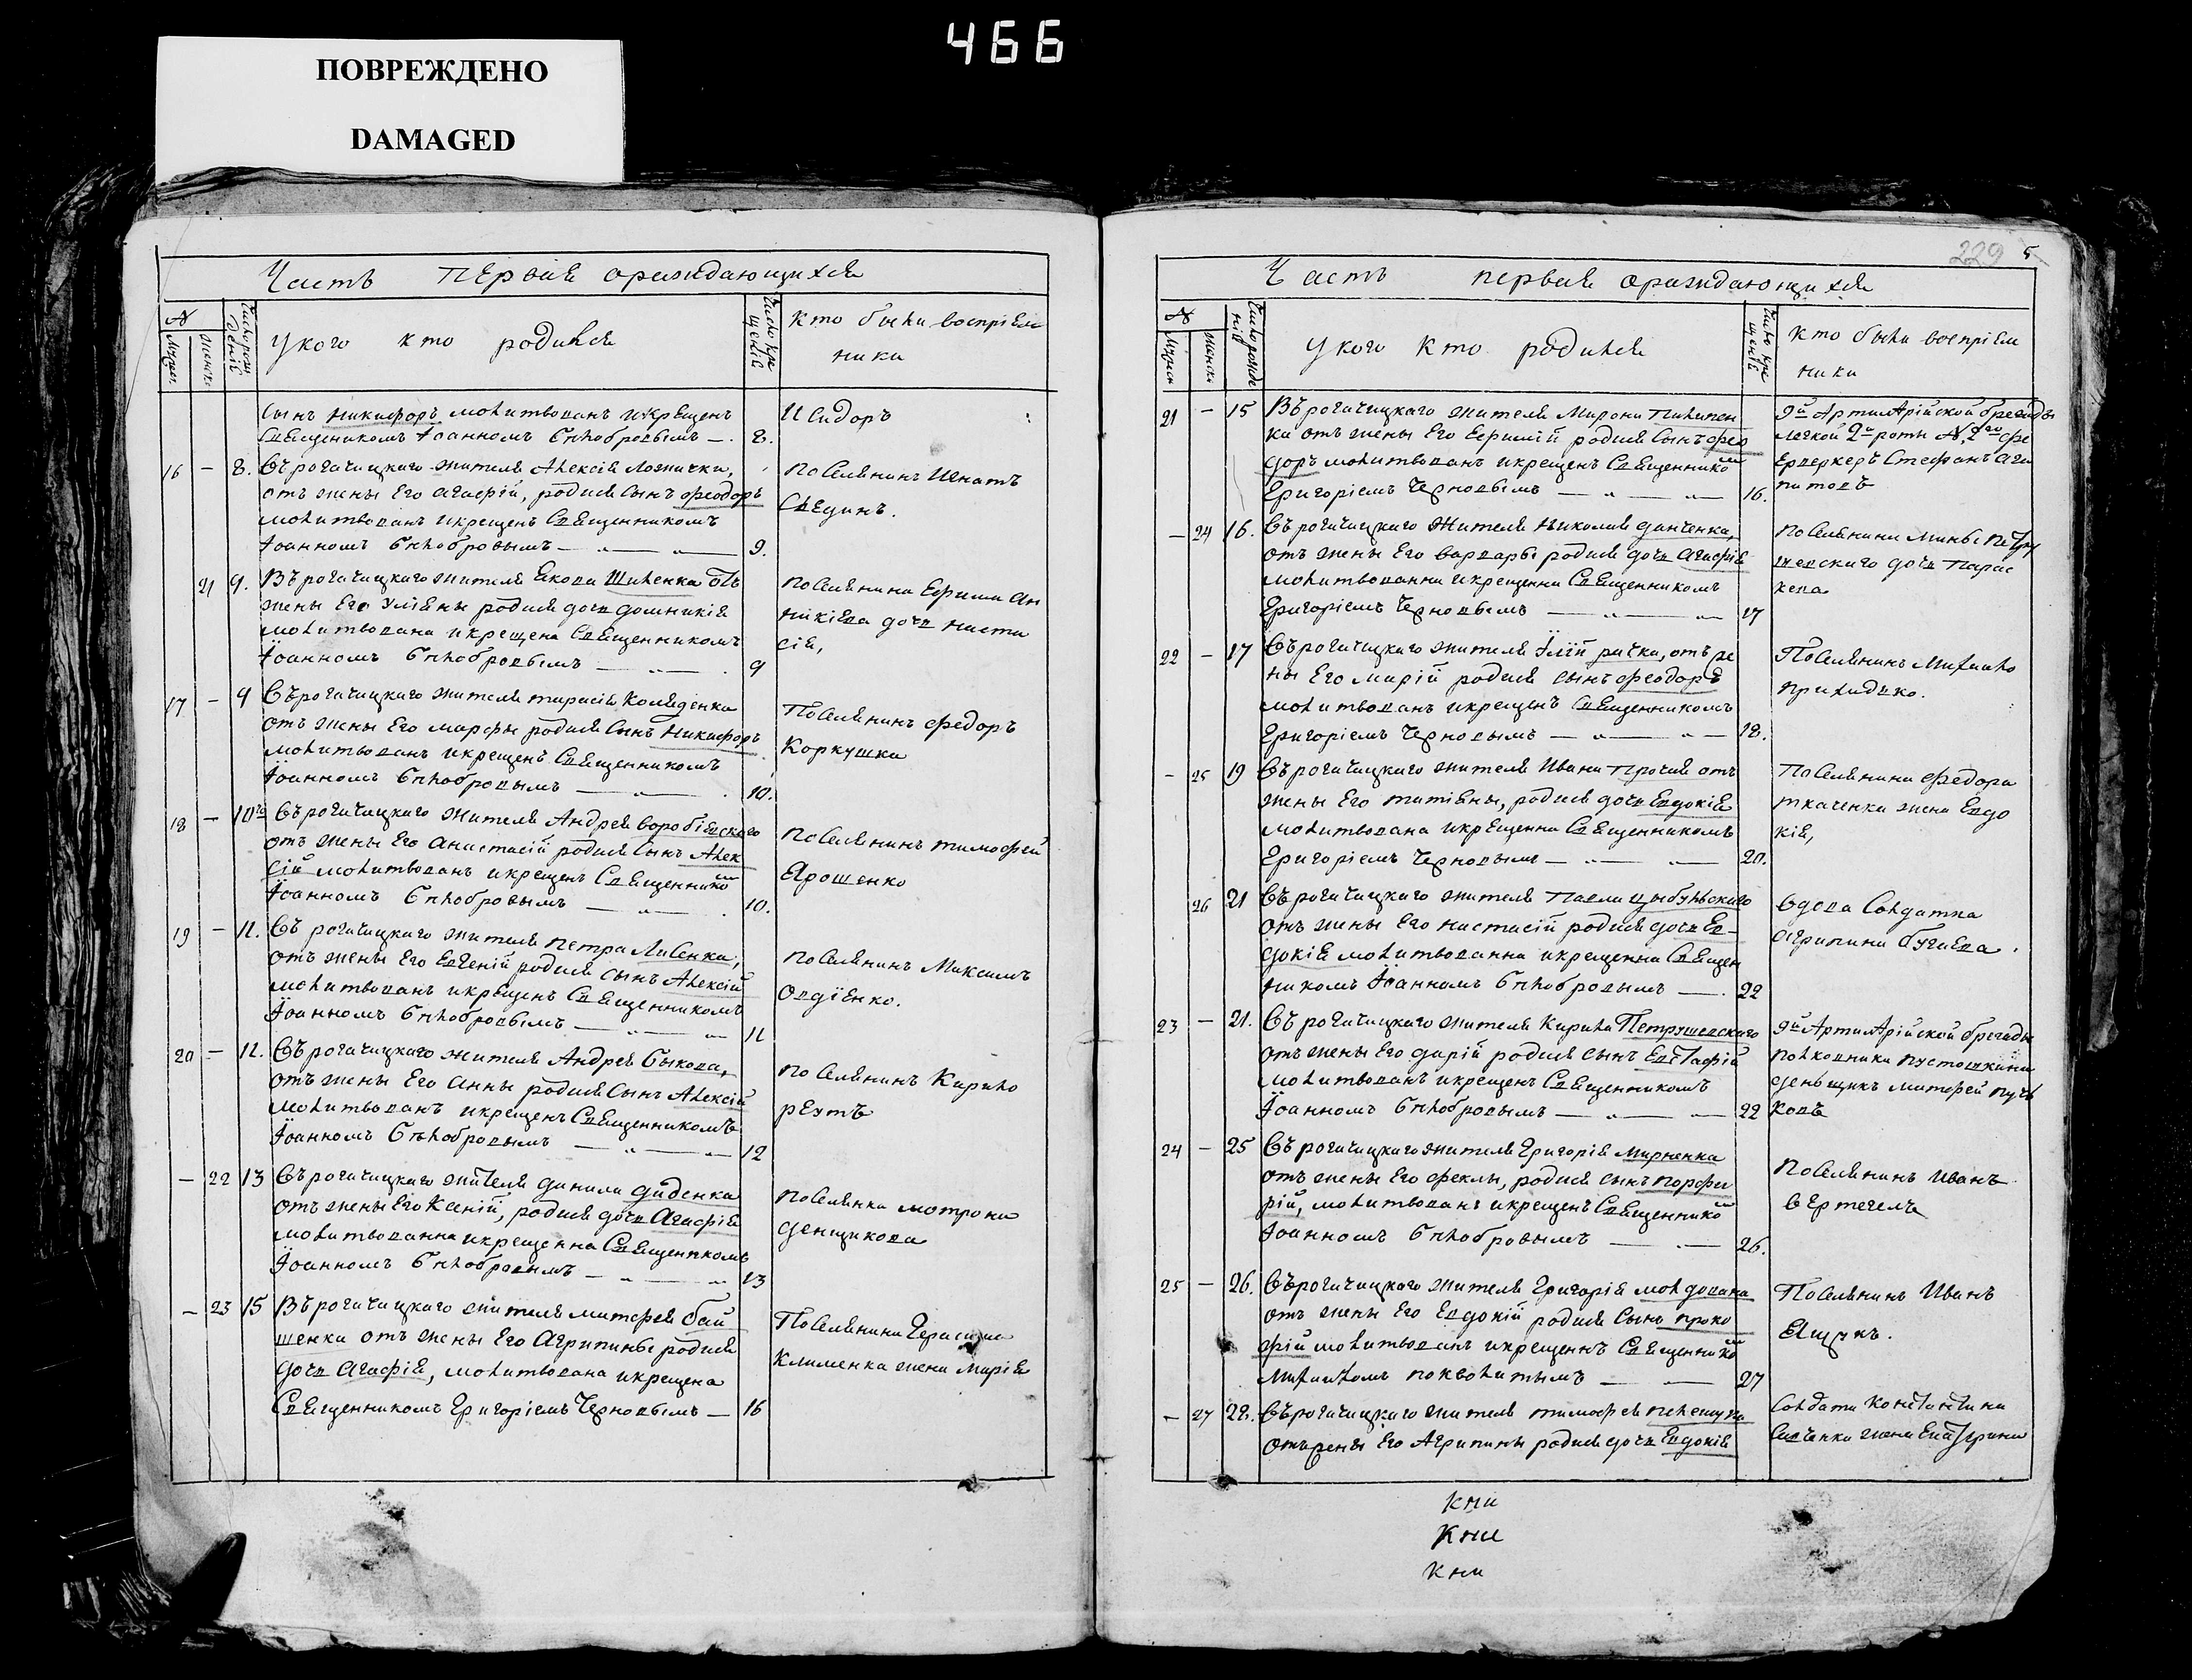 466
ПОВРЕЖДЕНО
DAMAGED
Часть первая ораждающихся
№
Мужеск.
Женск.
Число рож
денія
У кого кто родился
Число кре
щенія
Кто были воспріем
ники
сынъ Никифоръ молитвованъ икрещенъ
Священикомъ Іоанномъ Бѣлобровымъ — 8.
Исидоръ
16 — 8. Въ рогачицкаго жителя Алексія Ложички,
отъ жены Его Агафіи, родися сынъ Феодоръ
молитвованъ икрещенъ Священникомъ
Іоанномъ Бѣлобровымъ — „ — „ — 9.
Поселянинъ Игнатъ
Сведунъ.
21 9. Въ рогачицкаго жителя Якова Шиленка отъ
жены Его Уліяны родися дочь Домникія
молитвована икрещена Священникомъ
Іоанномъ Бѣлобровымъ — „ — 9
Поселянина Ефима Ан
никіева дочь Наста
сія,
17 — 9 Въ рогачицкаго жителя Тарасія Коляденка
отъ жены Его Марфы родися Сынъ Никифоръ
молитвованъ икрещенъ Священникомъ
Іоанномъ Бѣлобровымъ — „ — 10.
Поселянинъ Федоръ
Коркушка
18 — 10го Въ рогачицкаго жителя Андрея Воробіевскаго
отъ жены Его Анастасіи родися Сынъ Алек
сій молитвованъ икрещенъ Священнико
Іоанномъ Бѣлобровымъ — „ — 10.
Поселянинъ Тимофей
Ярошенко
19 — 11. Въ рогачицкаго жителя Петра Лисенка,
отъ жены Его Евгеніи родися сынъ Алексій
молитвованъ икрещенъ Священникомъ
Іоанномъ Бѣлобровымъ — „ — „ 11
Поселянинъ Максимъ
Овдіенко.
20 — 11. Въ рогачицкаго жителя Андрея Быкова,
отъ жены Его Анны родися Сынъ Алексій
молитвованъ икрещенъ Священникомъ
Іоанномъ Бѣлобровымъ — „ — „ — 12
Поселянинъ Кирило
реутъ
— 22 13 Въ рогачицкаго жителя Данила Диденка
отъ жены Его Ксеніи, родися дочь Агафія
молитвованна икрещенна Священикомъ
Іоанномъ Бѣлобровымъ — „ — „ 13
Поселянка мотрона
денщикова
— 23 15 Въ рогачицкаго жителя Матфея Бай
шенка отъ жены Его Агрипины родися
дочь Агафія, молитвована икрещена
Священникомъ Григоріемъ Черновымъ — 16
Поселянина Герасима
Клименка жена Марія
229 5
Часть первая ораждающихся
№
Мужеск
Женск
Число рожде
нія
У кого кто родился
Число кре
щенія
Кто были воспріем
ники
21 — 15 Въ рогачицкаго жителя Мирона Пилипен
ка отъ жены Его Ефиміи родися Сынъ Фео
доръ молитвованъ икрещенъ Священнико
Григоріемъ Черновымъ — „ — „ — 16.
9й Артиллрійской бригады
легкой 2й роты № 2го фе
Ерверкеръ Стефанъ Ага
питовъ
— 24 16. Въ рогачицкаго Жителя Николая Данченка,
отъ жены Его Варвары родися дочь Агафія
молитвованна икрещенна Священникомъ
Григоріемъ Черновымъ — „ — 17
Поселянина Мины Петру
шевскаго дочь Парас
кева
22 — 17 Въ рогачицкаго жителя Іліи рачка, отъ же
ны Его Маріи родися сынъ Феодоръ
молитвованъ икрещенъ Священникомъ
Григоріемъ Черновымъ — „ — „ — 18.
Поселянинъ Михайло
Прихидько.
— 25 19 Въ рогачицкаго жителя Ивана Прочая отъ
жены Его Татіяны, родися дочь Евдокія
молитвована икрещенна Священникомъ
Григоріемъ Черновымъ — „ — „ — 20.
Поселянина Федора
ткаченка жена Евдо
кія,
26 21 Въ рогачицкаго жителя Павла Цыбульскаго
отъ жены Его Настасіи родися дочь Ев-
докія молитвованна икрещенна Священ
никомъ Іоанномъ Бѣлобровымъ — . 22
Вдова Солдатка
Агрипина Бугаева.
23 — 21. Въ рогачицкаго жителя Кирила Петрушевскаго
отъ жены Его Даріи родися сынъ Евстафій
молитвованъ икрещенъ Священникомъ
Іоанномъ Бѣлобровымъ — „ — 22
9й Артиллрійской бригады
Полковника Пустошкина
деньщикъ Матфей Пуч
ковъ
24 — 25 Въ рогачицкаго жителя Григорія Мирненка
отъ жены Его Феклы, родися сынъ Порфи
рій, молитвованъ икрещенъ Священнико
Іоанномъ Бѣлобровымъ — „ — 26.
Поселянинъ Иванъ
вертегелъ
25 — 26. Въ рогачицкаго жителя Григорія Молдована
отъ жены Его Евдокіи родися Сынъ Проко
фій молитвованъ икрещеннъ Священнико
Михаиломъ Поквалитымъ — — 27
Поселянинъ Иванъ
Ящукъ.
— 27 28. Въ рогачицкаго жителя Тимофея Пелешука
отъ жены Его Агрипины родися дочь Евдокія
Солдата Константина
Савченка жена Екатерина
кни
кни
кни